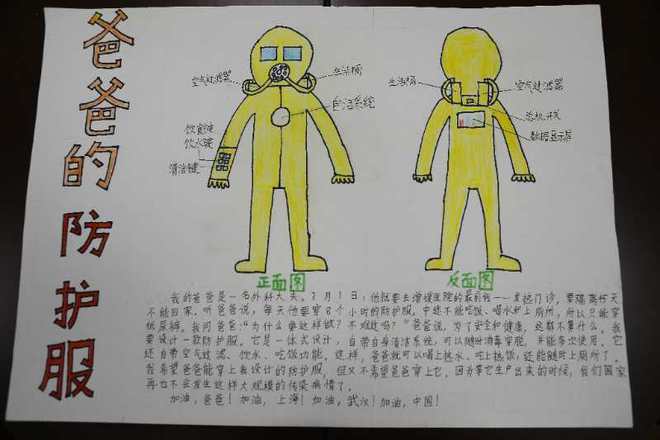 爸爸的防护服
空气过滤器
生活桶
自洁系统
饮食键
饮水键
清洁键
正面图
生活桶
空气过滤器
总机开关
数据显示屏
反面图
我的爸爸是一名外科大夫。2月1日，他就要去增援医院的最前线——发热门诊，要隔离好久
不能回家。听爸爸说，每天他要穿8个小时的防护服。中途不能吃饭、喝水和上厕所，所以只能穿
纸尿裤。我问爸爸：“为什么要这样做？不难过吗？”爸爸说，为了安全和健康，这都不算什么。我
要设计一款防护服。它是一体式设计，自带自身清洁系统，可以随时消毒穿脱，并能多次使用。它
还自带空气过滤、饮水、吃饭功能。这样，爸爸就可以喝上热水、吃上热饭，还能随时上厕所了。
我希望爸爸能穿上我设计的防护服，但又不希望爸爸穿上它。因为等它生产出来的时候，我们国家
再也不会发生这样大规模的传染病情了。
加油，爸爸！加油，上海！加油，武汉！加油，中国！